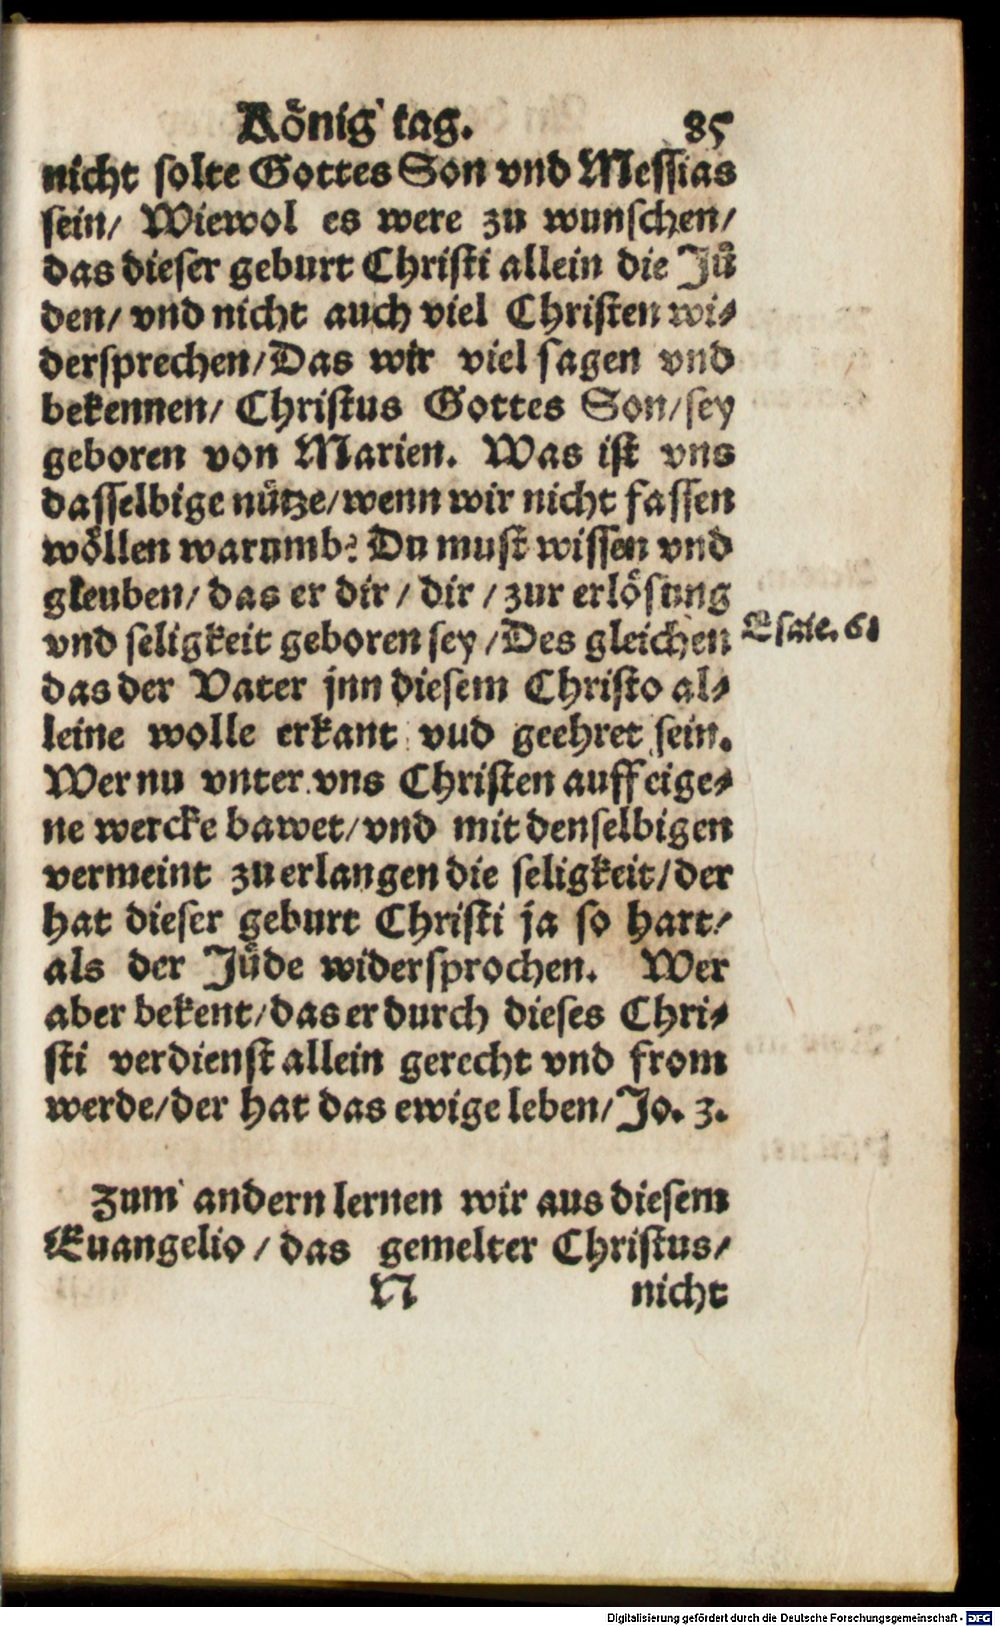 König tag. 85
nicht solte Gottes Son vnd Messias
sein/ Wiewol es were zu wunschen/
das dieser geburt Christi allein die Juͤ
den/ vnd nicht auch viel Christen wi⸗
dersprechen/Das wir viel sagen vnd
bekennen/ Christus Gottes Son/sey
geboren von Marien. Was ist vns
dasselbige nuͤtze/wenn wir nicht fassen
woͤllen warumb? Du must wissen vnd
gleuben/ das er dir / dir / zur erloͤsung
vnd seligkeit geboren sey /Des gleichen
Esaie. 61
das der Vater jnn diesem Christo al⸗
leine wolle erkant vud geehret sein.
Wer nu vnter vns Christen auff eige⸗
ne wercke bawet/vnd mit denselbigen
vermeint zu erlangen die seligkeit/der
hat dieser geburt Christi ja so hart/
als der Juͤde widersprochen. Wer
aber bekent/das er durch dieses Chri⸗
sti verdienst allein gerecht vnd from
werde/der hat das ewige leben/Jo. 3.
Zum andern lernen wir aus diesem
Euangelio / das gemelter Christus/
N nicht
Digitalisierung gefördert durch die Deutsche Forschungsgemeinschaft - DFG